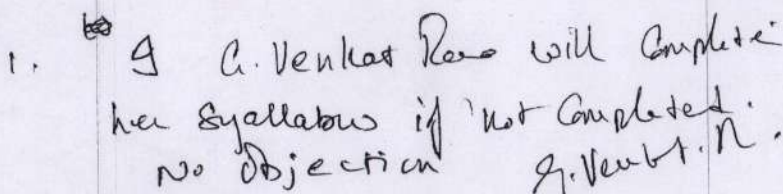 1. I G. Venkat Rao will Complete
her Syallabus if not Completed.
No Objection G. Venkt. R.